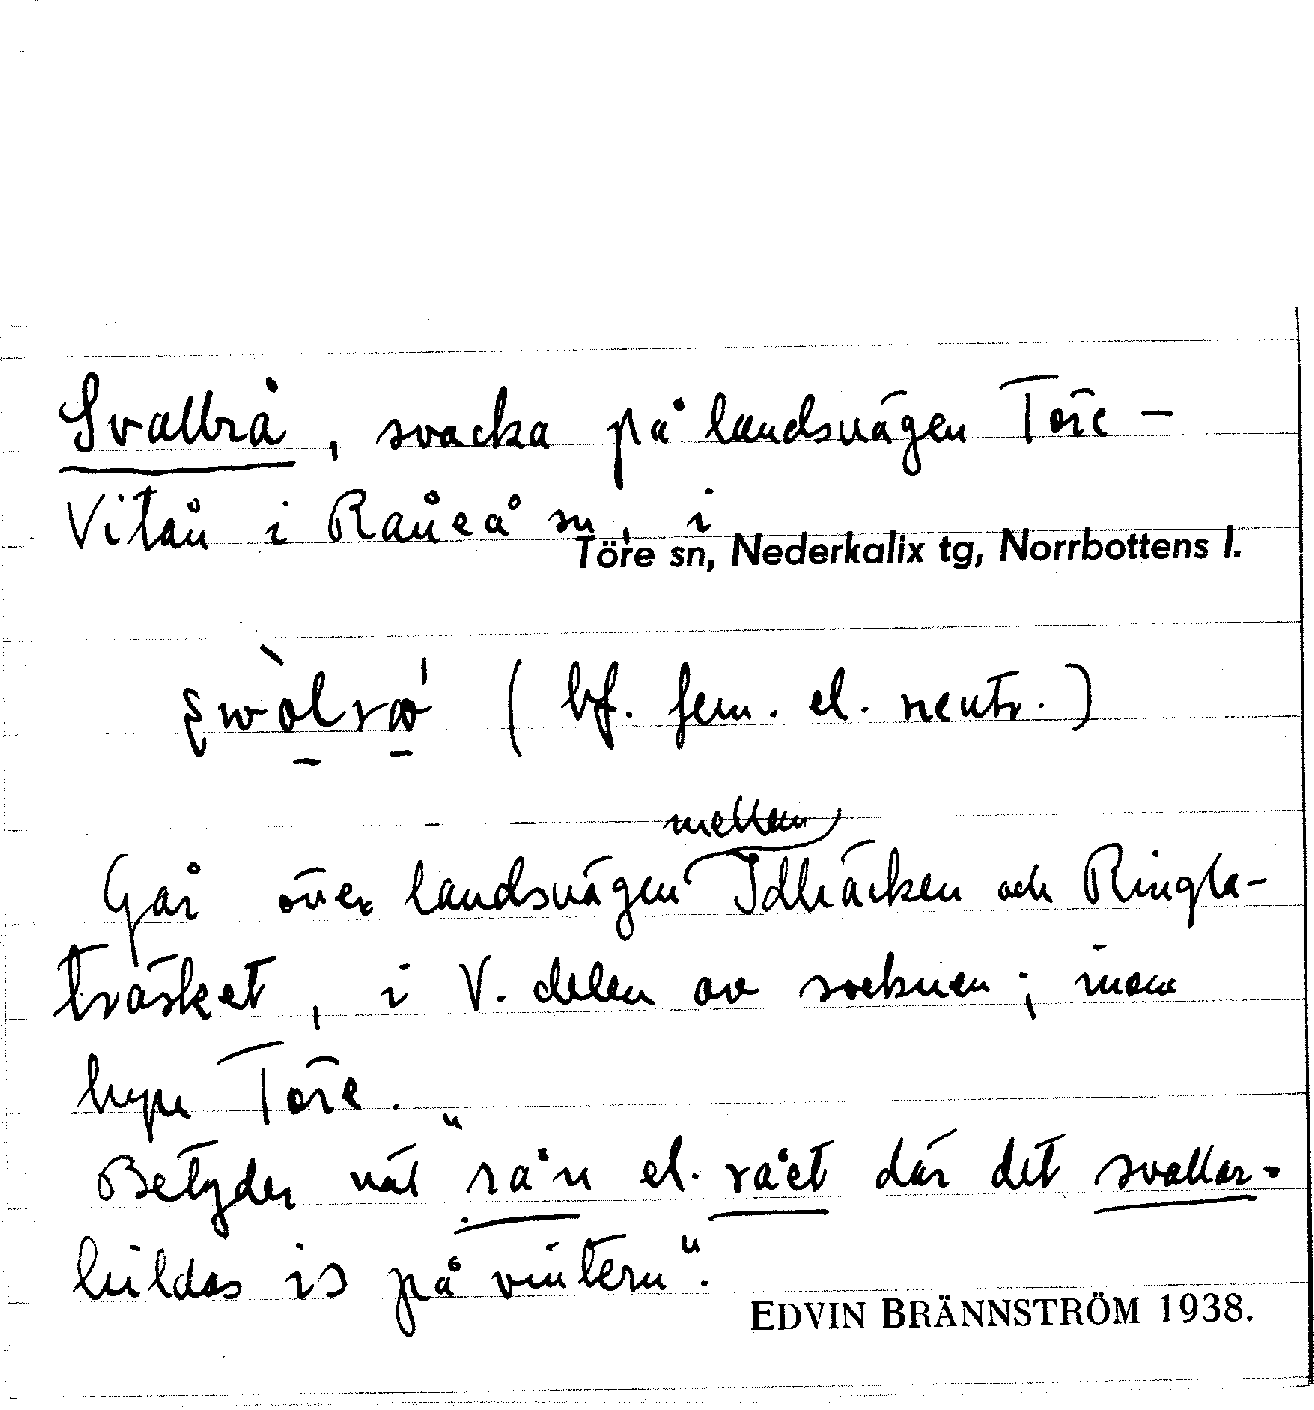 Svallrå, svacka på landsvägen Töre –
Vitån i Råneå sn, i
Töre sn, Nederkalix tg, Norrbottens l.
(bf. fem. el. neutr.)
mellan
Går över landsvägen Idbäcken och Ringla-
träsket, i V. delen av socknen; inom
byn Töre.
Betyder väl "rån el. rået där det svallar-
bildas is på vintern".
EDVIN BRÄNNSTRÖM 1938.